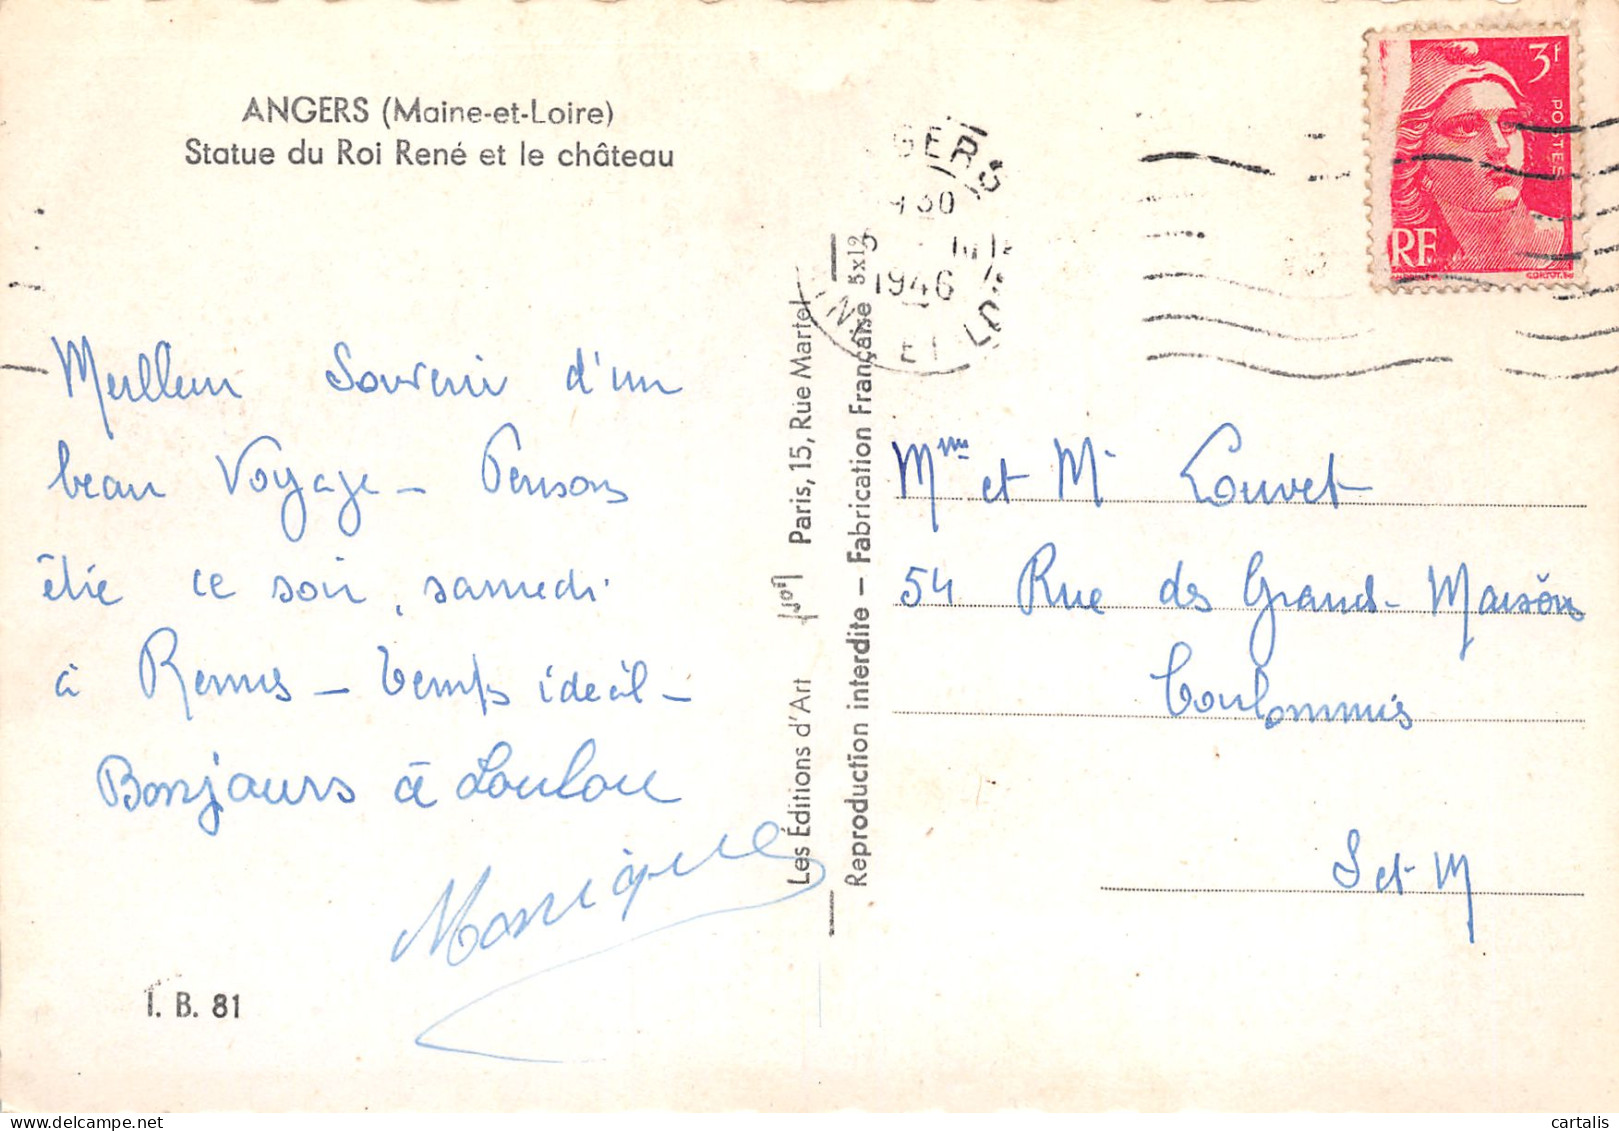 ANGERS (Maine-et-Loire)
Statue du Roi René et le château
Meilleur Souvenir d'un
beau Voyage - Pensons
être ce soir, samedi
à Rennes - temps idéal -
Bonjours à Loulou
Monique
I. B. 81
Les Éditions d'Art YVON Paris, 15, Rue Martel
Reproduction interdite - Fabrication Française 5x12
GERS
30
1946
ET LOI
3F
POSTES
RF
Mme et Mr Louvet
54 Rue des Grand-Maisons
Coulommiers
S et M
cartalis